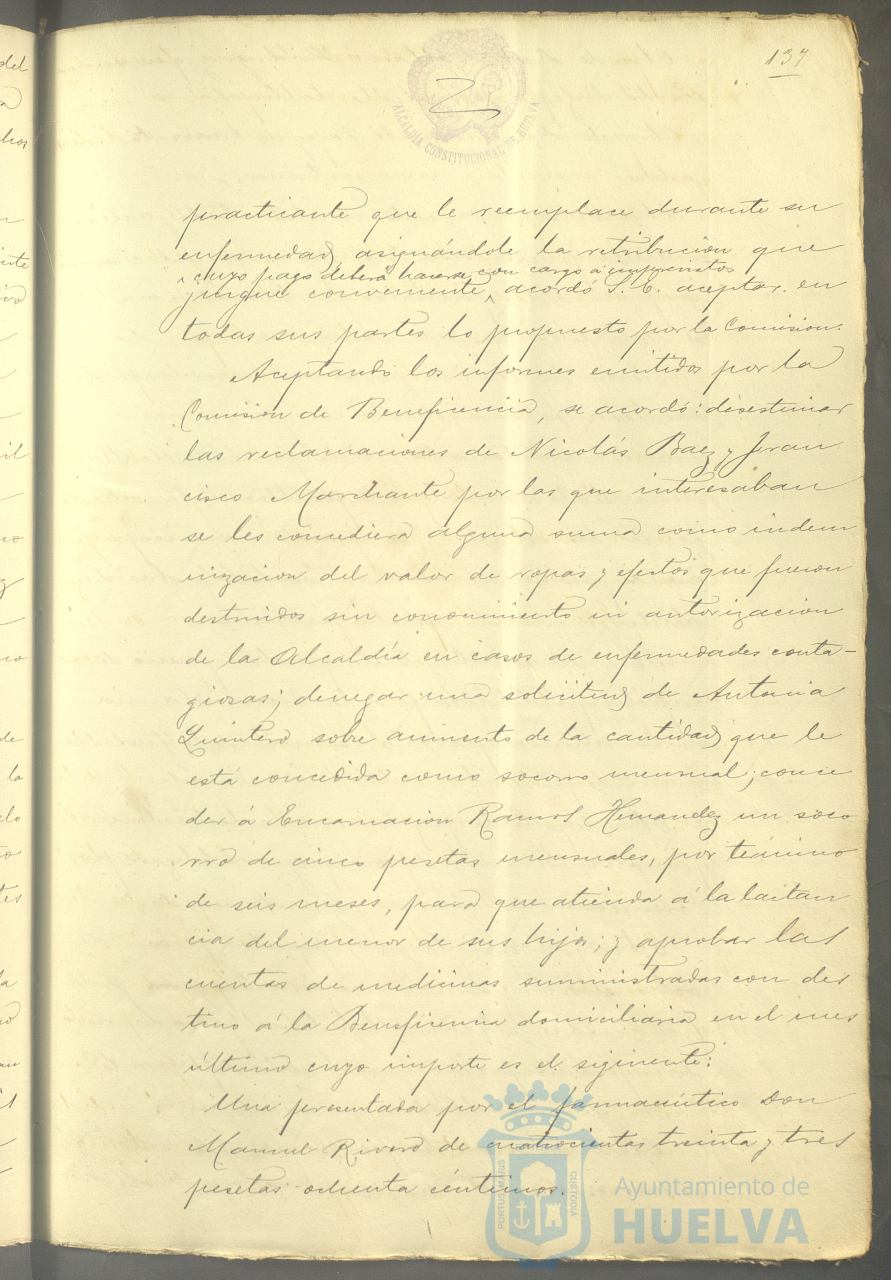 137
ALCALDÍA CONSTITUCIONAL DE HUELVA
practicante que le reemplace durante su
enfermedad, asignándole la retribución que
cuyo pago deberá hacerse con cargo á imprevistos
juzgue conveniente, acordó S. E. aceptar en
todas sus partes lo propuesto por la Comision.
Aceptando los informes emitidos por la
Comision de Beneficencia, se acordó: desestimar
las reclamaciones de Nicolás Baez y Fran
cisco Marchante por las que interesaban
se les concediera alguna suma como indem
nizacion del valor de ropas y efectos que fueron
destruidos sin conocimiento ni autorizacion
de la Alcaldía en casos de enfermedades conta-
giosas; denegar una solicitud de Antonia
Quintero sobre aumento de la cantidad que le
está concedida como socorro mensual; conce
der á Encarnacion Ramos Hernandez un soco
rro de cinco pesetas mensuales, por término
de seis meses, para que atienda á la lactan
cia del menor de sus hijos; y aprobar las
cuentas de medicinas suministradas con des
tino á la Beneficencia domiciliaria en el mes
último cuyo importe es el siguiente:
Una presentada por el farmacéutico Don
Manuel Rivero de cuatrocientas treinta y tres
pesetas ochenta céntimos.
PORTUS MARIS
CUSTODIA
Ayuntamiento de
HUELVA